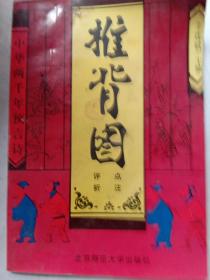 中华两千年预言诗
推背图
评析
点注
北京师范大学出版社